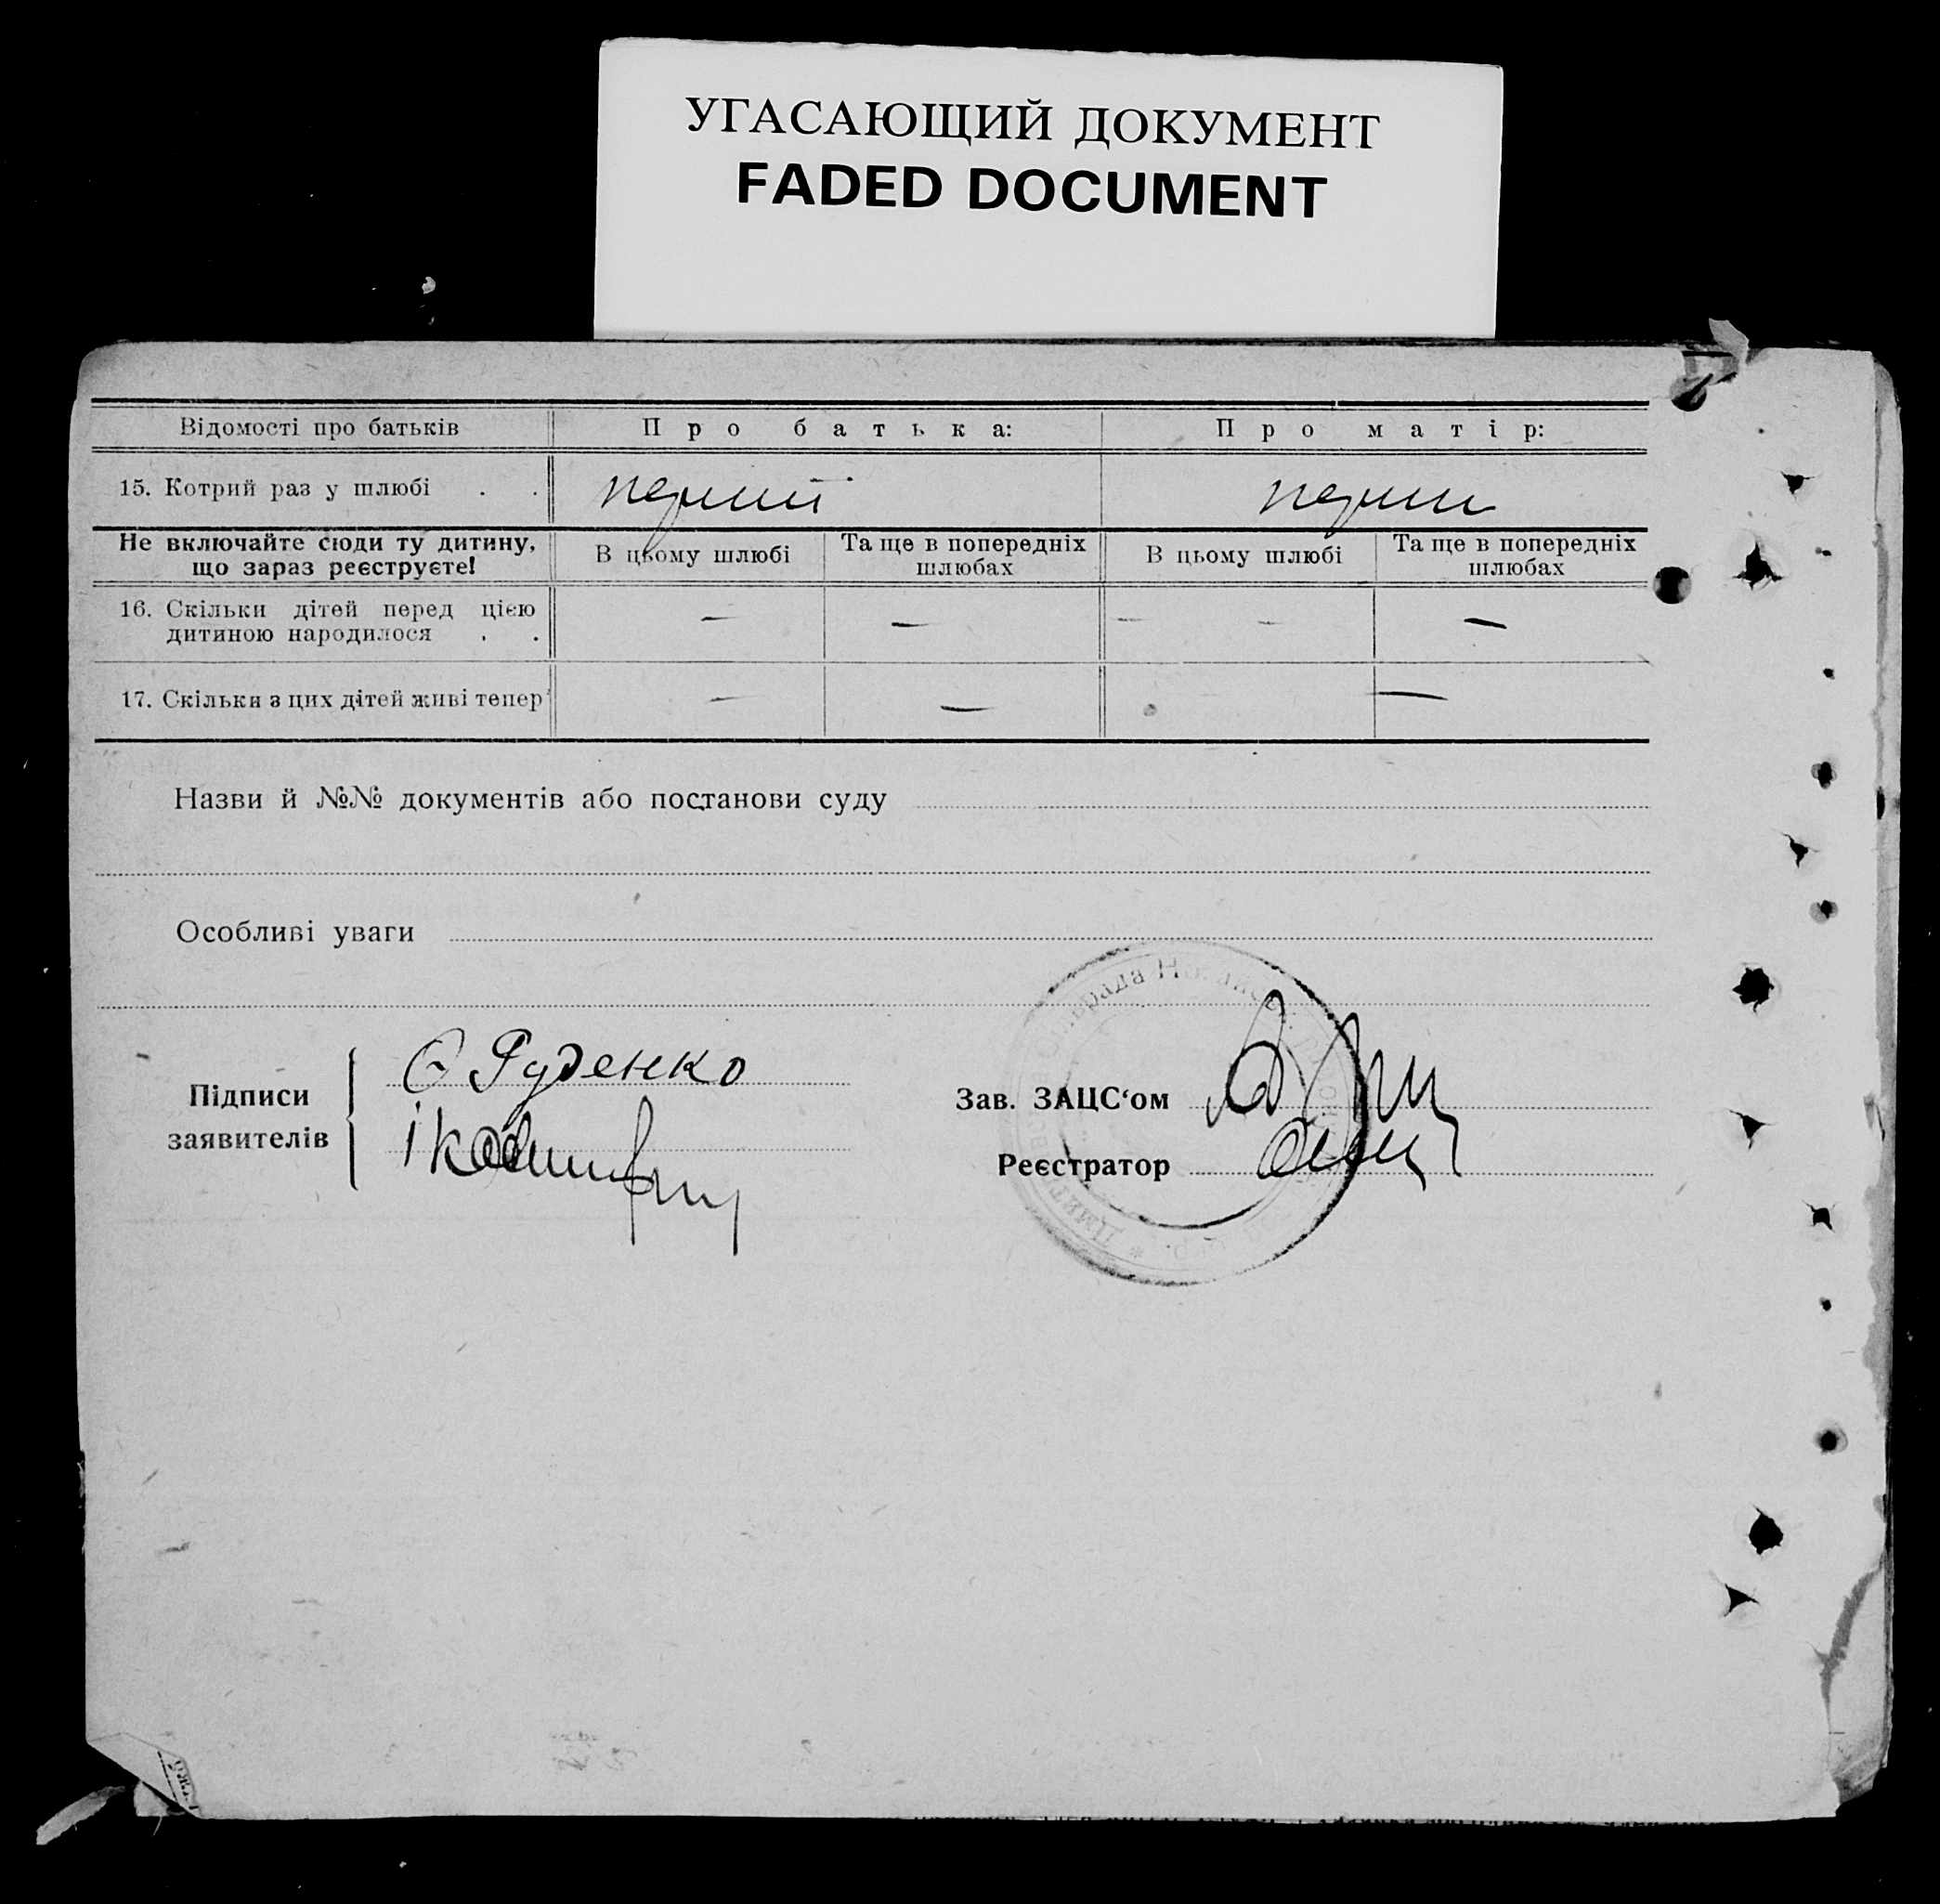 УГАСАЮЩИЙ ДОКУМЕНТ
FADED DOCUMENT
Відомості про батьків Про батька: Про матір:
15. Котрий раз у шлюбі . . перший перший
Не включайте сюди ту дитину, що зараз реєструєте! В цьому шлюбі Та ще в попередніх шлюбах В цьому шлюбі Та ще в попередніх шлюбах
16. Скільки дітей перед цією дитиною народилося . . — — — — —
17. Скільки з цих дітей живі тепер — — —
Назви й №№ документів або постанови суду
Особливі уваги
Підписи заявителів
О Руденко
Зав. ЗАЦС‘ом
Реєстратор